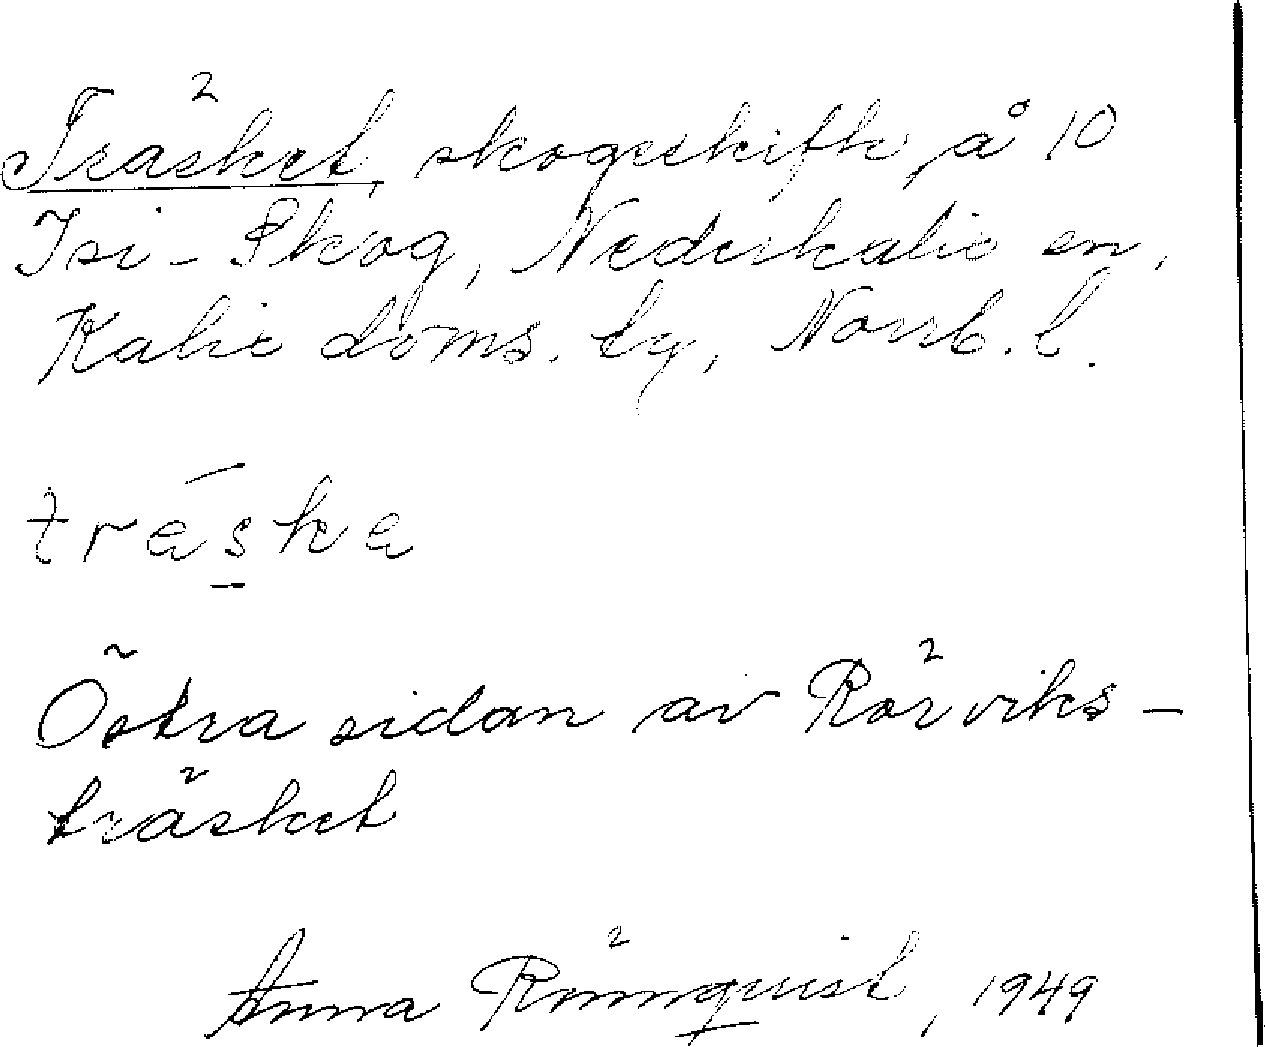 Träsket, skogsskifte på 10
Isi-Skog, Nederkalix sn,
Kalix doms. tg, Norrb. l.
träska
Östra sidan av Rörviks-
träsket
Anna Rönnquist, 1949